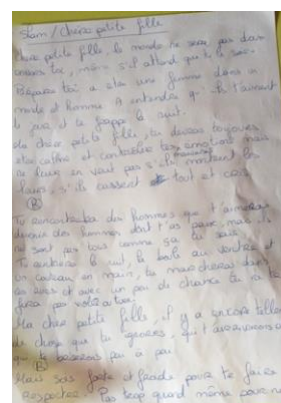 Slam / chère petite fille
chère petite fille, le monde ne sera pas doux
envers toi, même s'il attend que tu le sois.
Prépare toi a être une femme dans un
monde d'homme. A entendre qu'ils t'aiment
le jour et te frappe la nuit.
Ma chère petite fille, tu devras toujours
être calme et contrôler tes émotions mais
ne leur en veut pas s'ils montrent les
leurs, s'ils cassent tout et crie
(R)
Tu rencontreras des hommes que t'aimeras
des hommes dont t'as peur, mais ils
ne sont pas tous comme ça tu sais
Tu rentrera la nuit, la boule au ventre et
un couteau en main, tu marchera dans
les rues et avec un peu de chance tu ne te
fera pas
Ma chère petite fille, il y a encore telle
de chose que tu ignores, qui t'
qui te peu à peu
(R)
Mais sois forte et froide pour te faire
respecter. Pas trop quand même